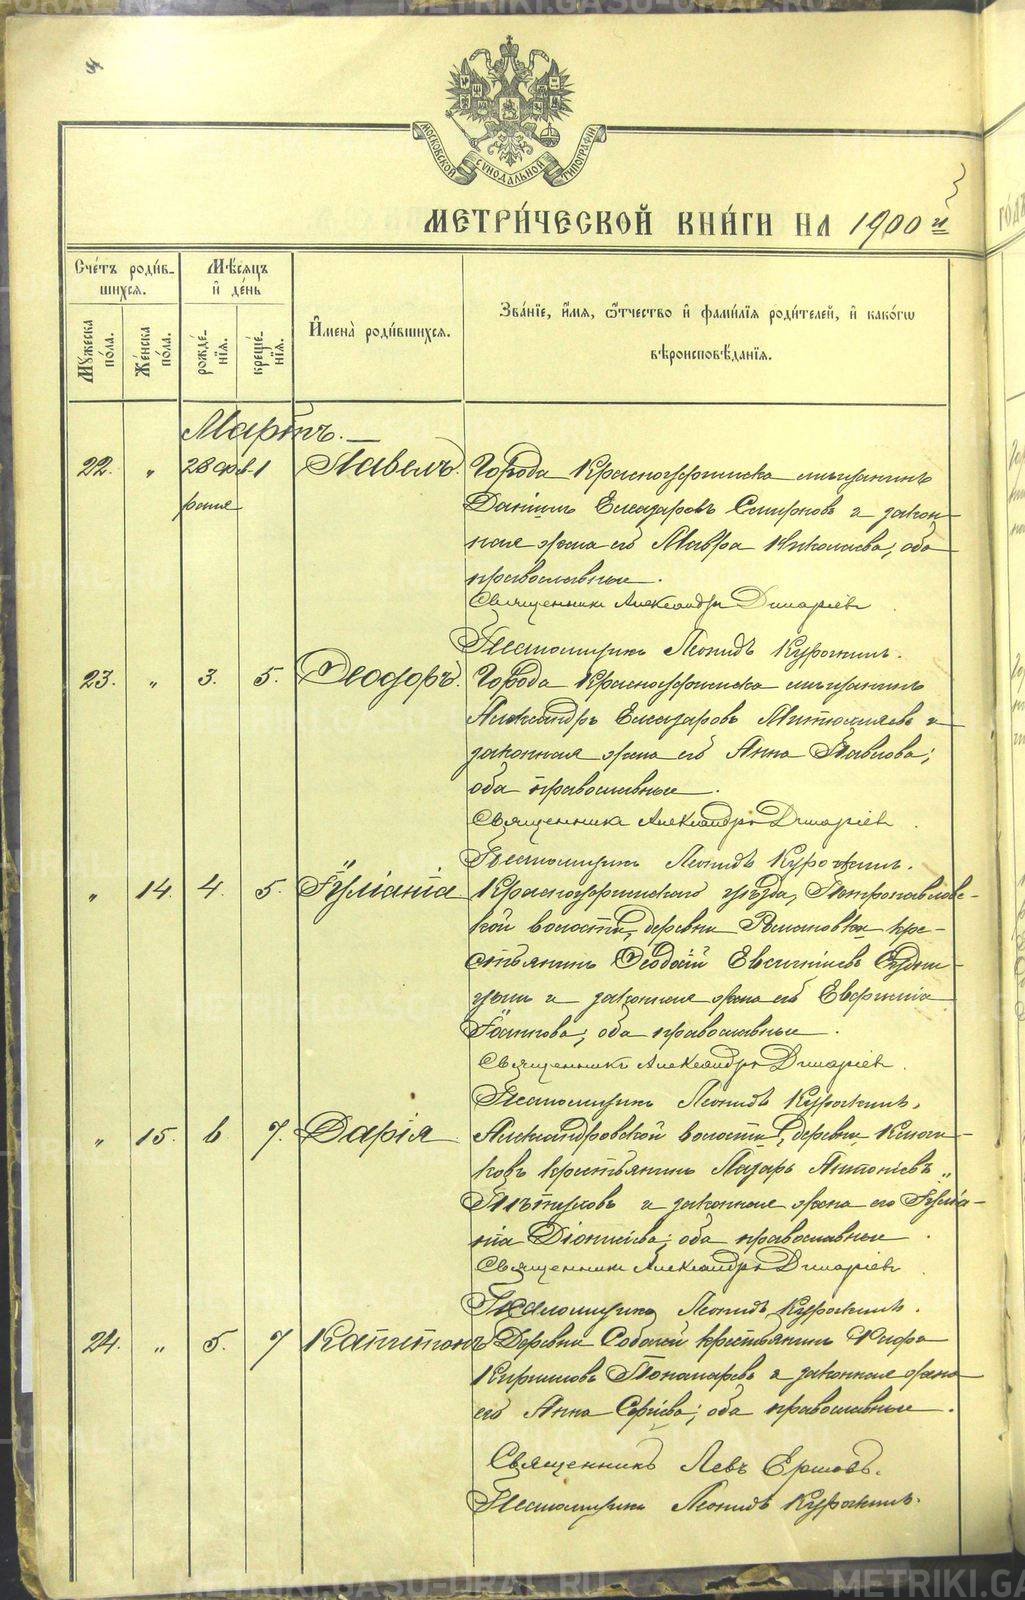 METRIKI.GASU-URAL.RU
МОСКОВСКОЙ СѴНОДАЛЬНОЙ ТИПОГРАФІИ
МЕТРИ́ЧЕСКОЙ КНИ́ГИ НА 1900 й
Сче́тъ роди́в-
шихся.
Мѣ́сяцъ
и҆ де́нь
Му́жеска
по́ла.
Же́нска
по́ла.
рожде́-
нїя.
креще́-
нїя.
И҆мена̀ роди́вшихся.
Зва́нїе, и҆́мя, ѻ҆́тчество и҆ фами́лїя роди́телей, и҆ како́гѡ
вѣроисповѣ́данїя.
Мартъ.
22. " 28 фев- 1 Павелъ. Города Красноуфимска мѣщанинъ
раля Даніилъ Елеазаровъ Смирновъ и закон-
ная жена его Мавра Николаева, оба
православные.
Священникъ Александръ
Псаломщикъ Леонидъ Курочкинъ.
23. " 3. 5. Ѳеодоръ. Города Красноуфимска мѣщанинъ
Александръ Елеазаровъ и
законная жена его Анна Павлова;
оба православные.
Священникъ Александръ
Псаломщикъ Леонидъ Курочкинъ.
" 14. 4. 5. Іуліанія Красноуфимскаго уѣзда, Петропавлов-
ской волости, деревни Романовки кре-
стьянинъ Ѳеодосій
и законная жена его Евфимія
Іоаннова, оба православные.
Священникъ Александръ
Псаломщикъ Леонидъ Курочкинъ.
" 15. 6 7. Дарія Александровской волости, деревни
крестьянинъ Лазарь Антоніевъ
и законная жена его Іуліа-
нія Діонисіева; оба православные.
Священникъ Александръ
Псаломщикъ Леонидъ Курочкинъ.
24. " 5. 7 Капитонъ Деревни крестьянинъ
Кирилловъ Пономаревъ и законная жена
его Анна Сергіева; оба православные.
Священникъ Левъ Ершовъ.
Псаломщикъ Леонидъ Курочкинъ.
METRIKI.GASU-URAL.RU